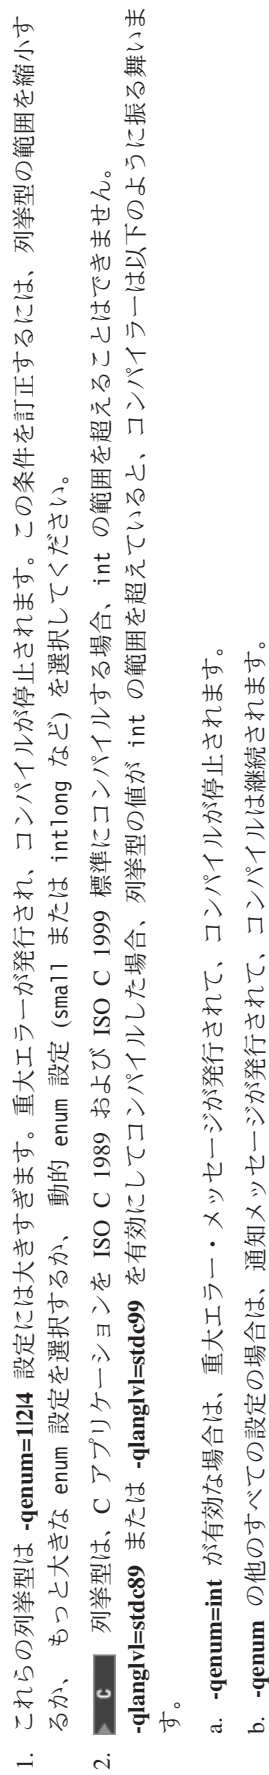 1. これらの列挙型は -qenum=1|2|4 設定には大きすぎます。重大エラーが発行され、コンパイルが停止されます。この条件を訂正するには、列挙型の範囲を縮小す
るか、もっと大きな enum 設定を選択するか、動的 enum 設定 (small または intlong など) を選択してください。
2. C 列挙型は、C アプリケーションを ISO C 1989 および ISO C 1999 標準にコンパイルする場合、int の範囲を超えることはできません。
-qlanglvl=stdc89 または -qlanglvl=stdc99 を有効にしてコンパイルした場合、列挙型の値が int の範囲を超えていると、コンパイラーは以下のように振る舞いま
す。
a. -qenum=int が有効な場合は、重大エラー・メッセージが発行されて、コンパイルが停止されます。
b. -qenum の他のすべての設定の場合は、通知メッセージが発行されて、コンパイルは継続されます。